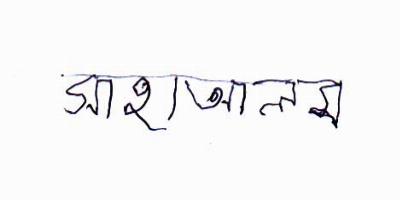 সাহাআলম